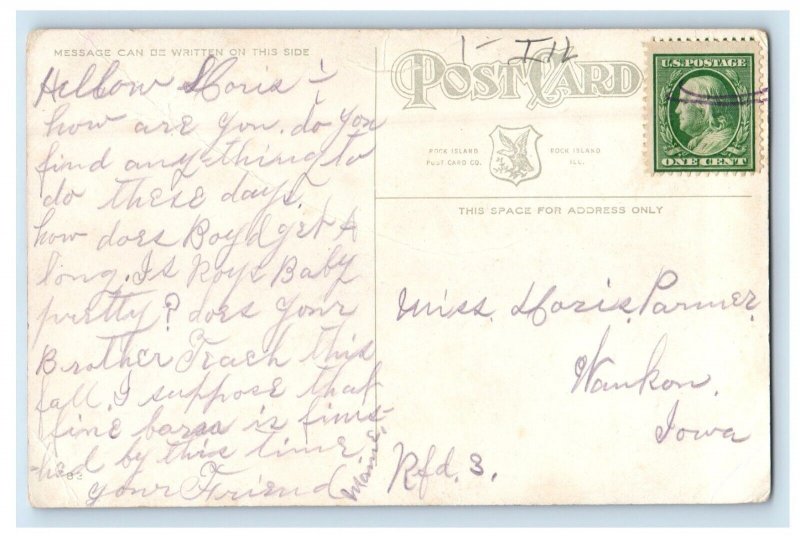 MESSAGE CAN BE WRITTEN ON THIS SIDE
Hellow Doris -
how are you. do you
find any thing to
do these days.
how does Boyd get A
long. Is Roys Baby
pretty? does your
Brother Teach this
fall. I suppose that
fine barn is finis-
hed by this time.
your Friend
Mamie
1- Ill
POST CARD
ROCK ISLAND
POST CARD CO.
ROCK ISLAND
ILL.
U.S. POSTAGE
ONE CENT
THIS SPACE FOR ADDRESS ONLY
Miss. Doris. Parmer,
Waukon,
Iowa
Rfd. 3.